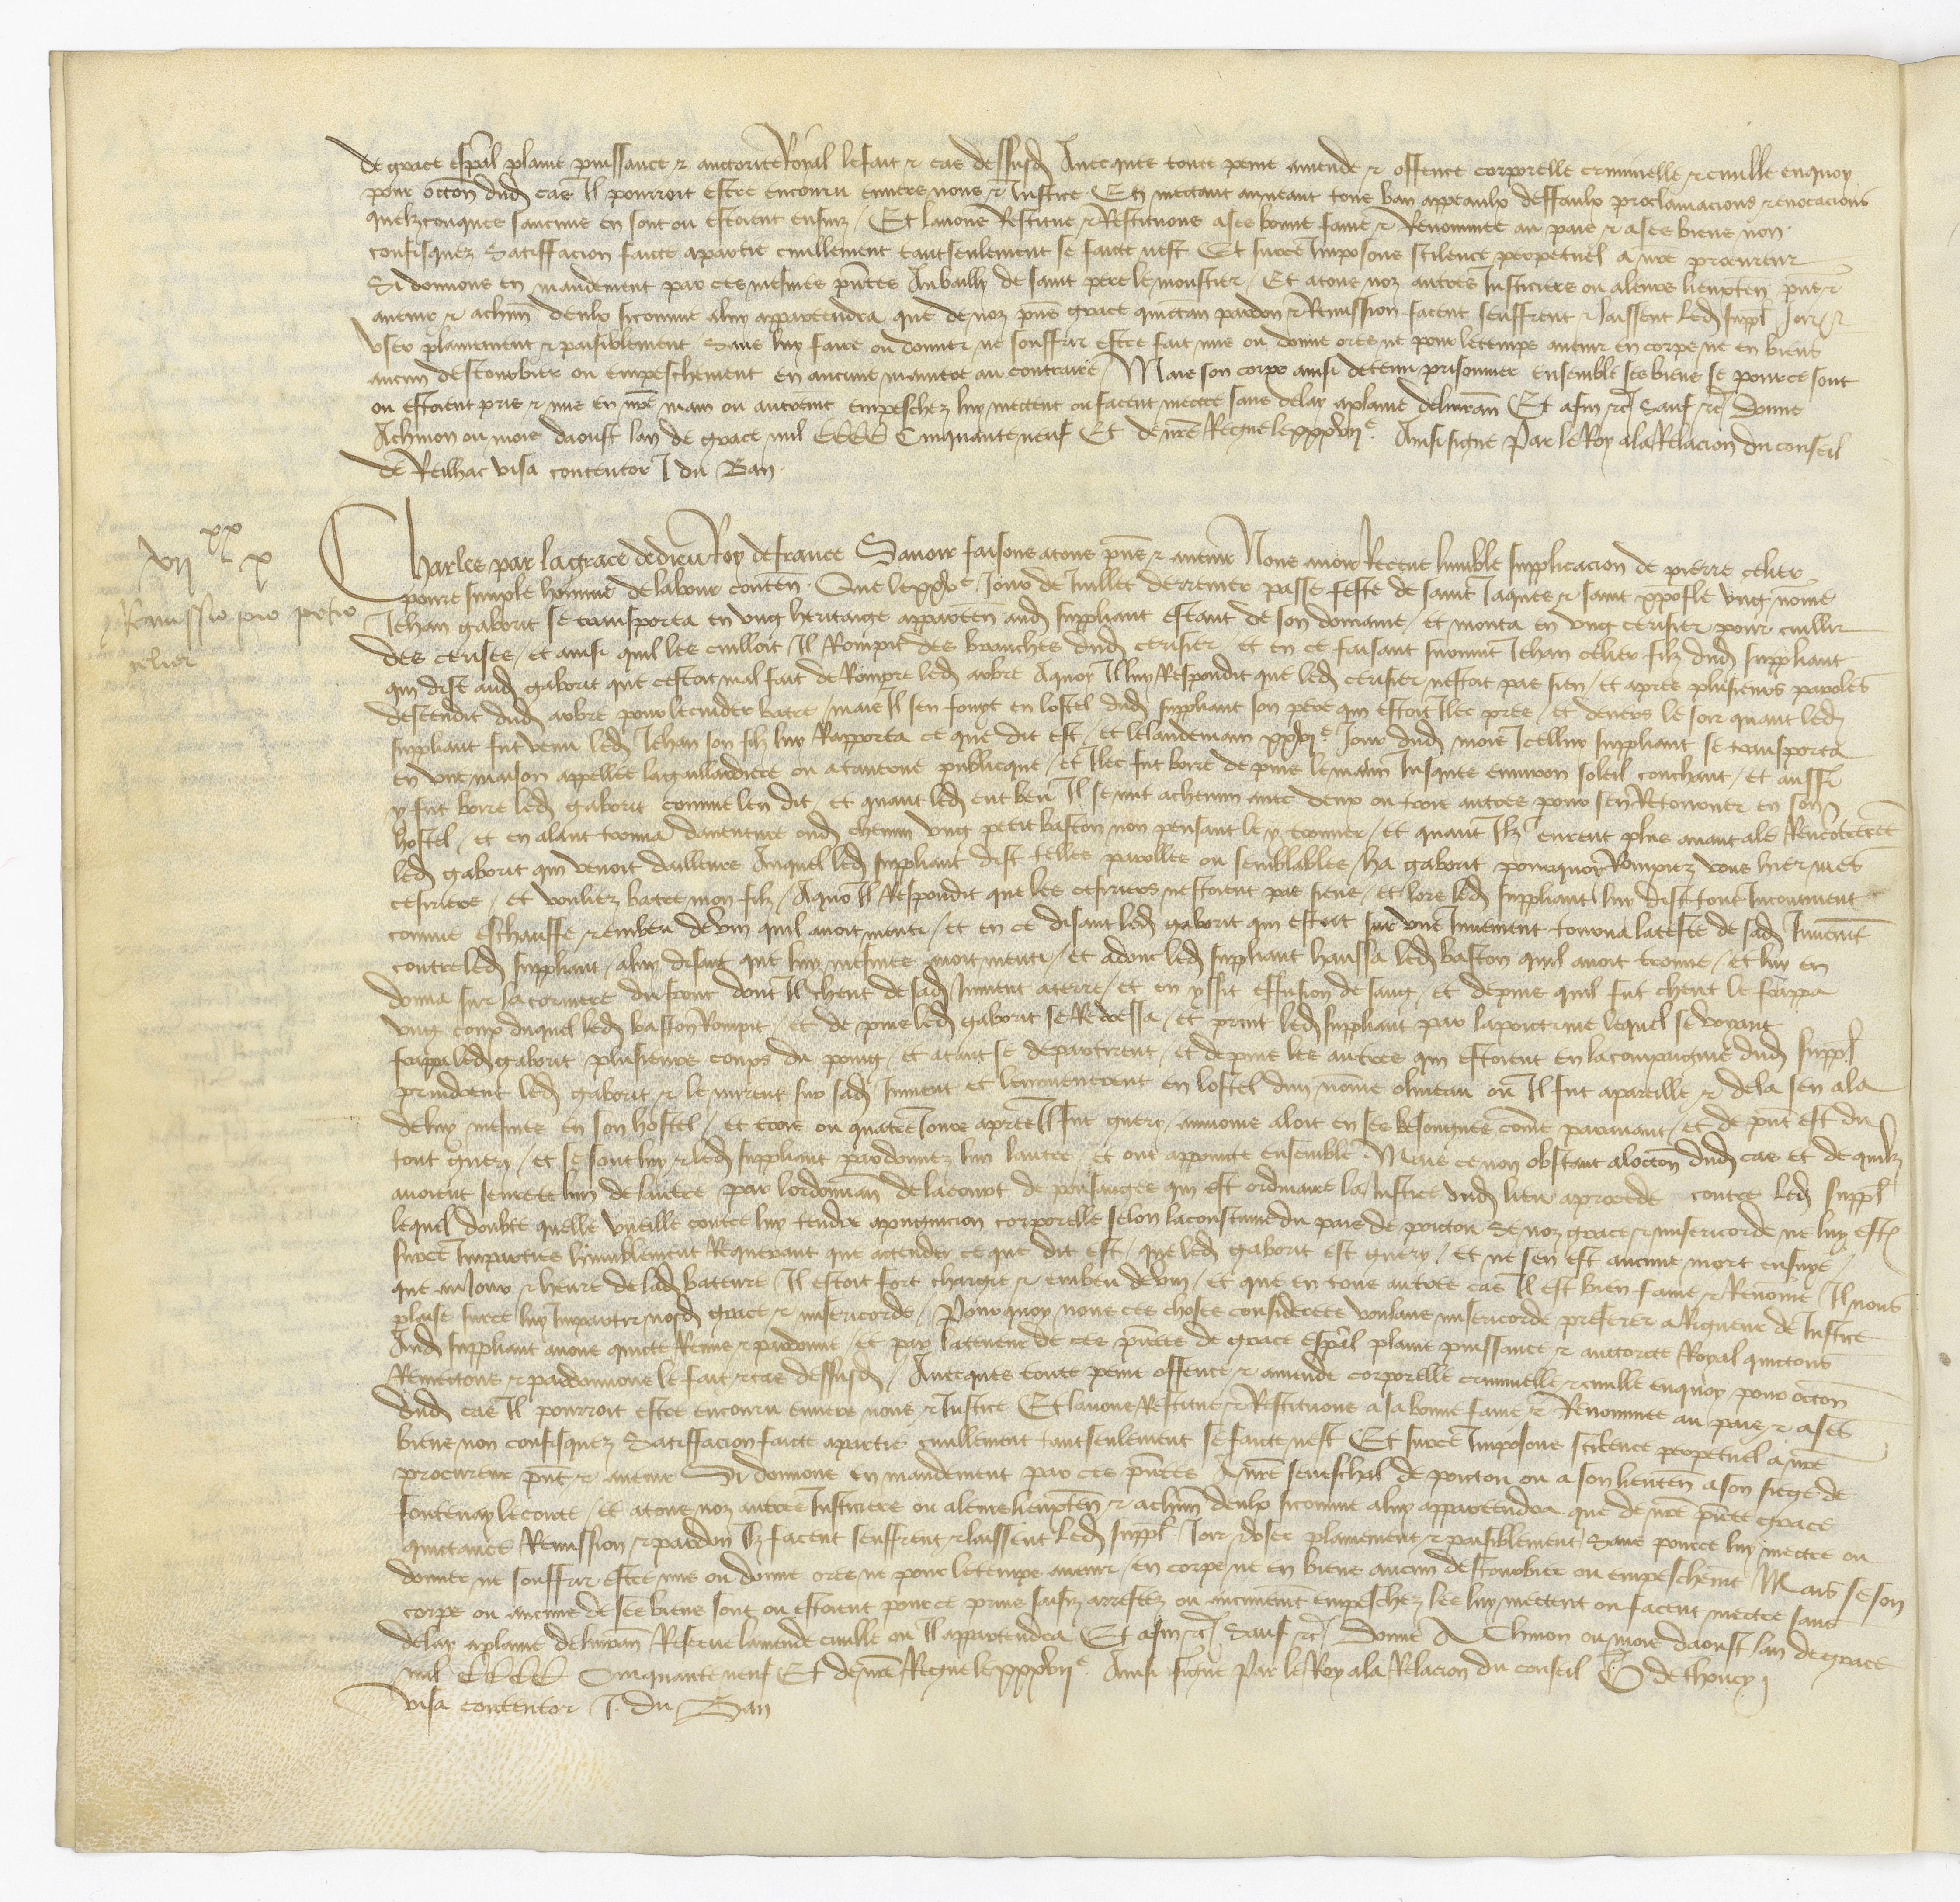 de grace espāl plaine puissance & auctorite Royal le fait & cas dessusd Avecques toute peine amende & offence corporelle criminelle & civille enquoy
pour occōn dud cas Il pourroit estre encouru envers nous & Justice En mectant anneant tous ban appeaulx deffaulx proclamacions revocacions
quelzconques saucune en sont ou estoient ensuiz / Et lavons Restitue & Restituons a ses bonne fame & Renommee au pais & a ses biens non
confisquez Satisffacion faicte apartie civillement tantseulement se faicte nest Et surce Imposons scilence perpetuel a nrē procureur
Si donnons en mandement par ces mesmes pn̄tes Au bailly de saint pere le moustier / Et atous noz autres Justiciers ou aleurs lieuxten pn̄s &
avenir & achūn deulx sicomme aluy appartendra que de noz pn̄s grace quictan pardon & Remission facent seuffrent & laissent led suppl Joir &
user plainement & paisiblement Sans luy faire ou donner ne souffrir estre fait mis ou donne ores ne pour le temps avenir en corps ne en biens
aucun destourbier ou empeschement en aucune maniere au contraire / Mais son corps ainsi detenu prisonnier ensemble ses biens se pource sont
ou estoient pris & mis en nrē main ou autremt empeschez luy mectent ou facent mectre sans delay aplaine delivran Et afin &c Sauf &c Donne
Achinon ou mois daoust lan de grace mil CCCC Cinquanteneuf Et de nrē Regne le xxxvije. Ainsi signe Par le Roy ala Relacion du conseil
de Reilhac visa contentor J du Ban.
vijxx x
Remissio pro petro
celier
Charles par la grace de dieu Roy de france Savoir faisons atous pn̄s & avenir Nous avoir Receue lumble supplicacion de pierre celier
povre simple homme de labour conten. Que le xxve Jour de Juillet derrenier passe feste de saint Jaques & saint xp̄ofle ung nōme
Jehan gaborit se transporta en ung heritaige apparten aud suppliant estant de son domaine / et monta en ung cerisier pour cuillir
des cerises / et ainsi quil les cuilloit Il Rompit des branches dud cerisier / et en ce faisant survint Jehan celier filz dud suppliant
qui dist aud gaborit que cestoit mal fait de Rompre led arbre Aquoy Il luy Respondit que led cerisier nestoit pas sien / et apres plusieurs paroles
descendit dud arbre pour le cuider batre / mais Il sen fouyt en lostel dud suppliant son pere qui estoit Ilec pres / et devers le soir quant led
suppliant fut venu led Jehan son filz luy Rapporta ce que dit est / et lelandemain xxvje Jour dud mois Icelluy suppliant se transporta
en une maison appellee lagaillardiere ou a taverne publicque / et Ilec fut boire depuis le matin Jusques environ soleil couchant / et aussi
y fut boire led gaborit comme len dit / et quant led eut beu Il se mit achemin avec deux ou trois autres pour sen Retourner en son
hostel / et en alant trouva daventure oud chemin ung petit baston non pensant le y trouver / et quant Ilz eurent plus avant ale Rencōtrerēt
led gaborit qui venoit dailleurs Auquel led suppliant dist telles parolles ou semblables / ha gaborit pourquoy Rompiez vous hier mes
cesriers / et vouliez batre mon filz / Aquoy Il Respondit que les cesriers nestoient pas siens / et lors led suppliant luy dist tout Incontinent
comme eschauffe & embeu de vin quil avoit menti / et en ce disant led gaborit qui estoit sur une Jument tourna lateste de sad Jumēt
contre led suppliant / aluy disant que luy mesmes avoit menti / et adonc led suppliant haussa led baston quil avoit trouve / et luy en
donna sur la corniere du front dont Il cheut de sad Jument aterre / et en yssit effusion de sang / et depuis quil fut cheut le frappa
ung coup duquel led baston Rompit / et de puis led gaborit se Redressa / et print led suppliant par lapoictrine lequel se voyant
frappa led gaborit plusieurs coups du poing / et atant se departirent / et depuis les autres qui estoient en lacompaignie dud suppl
prindrent led gaborit & le mirent sur sad Jument et lenmenerent en lostel dun nōme olivreau ou Il fut apareille & dela sen ala
deluy mesmes en son hostel / et trois ou quatre Jours apres Il fut guery / aumoins aloit en ses besoingnes com̄e paravant / et de pn̄t est du
tout guery / et se sont luy & led suppliant pardonnez lun lautre / et ont appoincte ensemble Mais ce non obstant alocctōn dud cas et de quilz
avoient seurete lun de lautre par lordonnan delacourt de pousauges qui est ordinaire la Justice dud lieu aprocede contre led suppl
lequel doubte quelle vueille contre luy tendre apugnicion corporelle selon la coustume du pais de poictou Se noz grace & misericorde ne luy estoit
surce Imparties humblement Requerant que actendu ce que dit est / que led gaborit est guery / et ne sen est aucune mort ensuye /
que au Jour & heure de lad bateure Il estoit fort chargie & embeu de vin / et que en tous autres cas Il est bien fame & Renōme Il nous
plaise surce luy Impartir nosd grace & misericorde / Pourquoy nous ces choses considerees voulans misericorde preferer a Rigueur de Justice
Aud suppliant avons quicte Remis & pardonne / et par lateneur de ces pn̄tes de grace espāl plaine puissance & auctorite Royal quictons
Remectons & pardonnons le fait & cas dessusd / Avecques toute peine offence & amende corporelle criminelle & civille enquoy pour occōn
dud cas Il pourroit estre encouru envers nous & Justice Et lavons Restitue & Restituons a sa bonne fame & Renommee au pais & a ses
biens non confisquez Satisffacion faicte apartie civillement tantseulement se faicte nest Et surce Imposons scilence perpetuel a nrē
procureur pn̄t & avenir Si donnons en mandement par ces pn̄tes Anrē seneschal de poictou ou a son lieuten a son siege de
fontenay le conte / et atous noz autres Justiciers ou aleurs lieuxten & achūn deulx sicomme aluy appartendra que de nrē pn̄te grace
quictance Remission & pardon Ilz facent seuffrent & laissent led suppl Joir & user plainement & paisiblement Sans pource luy mectre ou
donner ne souffrir estre mis ou donne ores ne pour le temps avenir en corps ne en biens aucun destourbier ou empeschemēt Mais se son
corps ou aucuns de ses biens sont ou estoient pource prins saisiz arrestez ou autremēt empeschez les luy mectent ou facent mectre sans
delay aplaine delivran Reserve lamende civille ou Il appartendra Et afin &c Sauf &c Donne AChinon ou mois daoust lan de grace
mil CCCC Cinquante neuf Et de nrē Regne le xxxvije. Ainsi signe Par le Roy ala Relacion du conseil G de thoucy
visa contentor J. du Ban